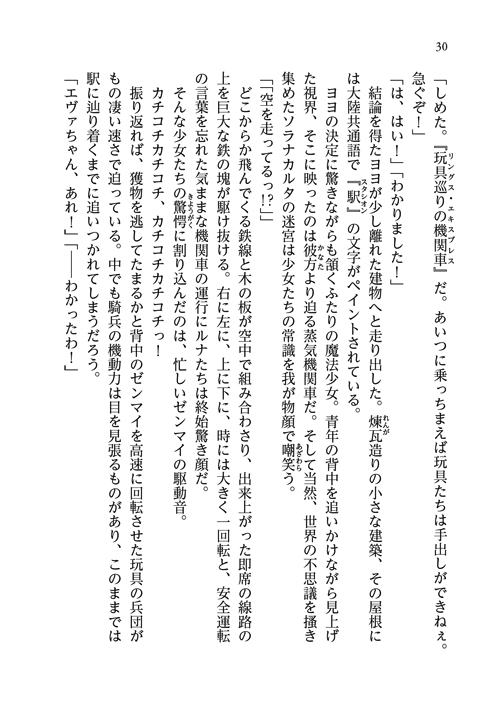 30
「しめた。『玩具巡りの機関車』だ。あいつに乗っちまえば玩具たちは手出しができねぇ。
リングス・エキスプレス
急ぐぞ！」
「は、はい！」「わかりました！」
結論を得たヨヨが少し離れた建物へと走り出した。煉瓦造りの小さな建築、その屋根に
れんが
は大陸共通語で『駅』の文字がペイントされている。
スタシオン
ヨヨの決定に驚きながらも頷くふたりの魔法少女。青年の背中を追いかけながら見上げ
た視界、そこに映ったのは彼方より迫る蒸気機関車だ。そして当然、世界の不思議を掻き
かなた
集めたソラナカルタの迷宮は少女たちの常識を我が物顔で嘲笑う。
あざわら
「「空を走ってるっ!?」」
どこからか飛んでくる鉄線と木の板が空中で組み合わさり、出来上がった即席の線路の
上を巨大な鉄の塊が駆け抜ける。右に左に、上に下に、時には大きく一回転と、安全運転
の言葉を忘れた気ままな機関車の運行にルナたちは終始驚き顔だ。
そんな少女たちの驚愕に割り込んだのは、忙しいゼンマイの駆動音。
きょうがく
カチコチカチコチ、カチコチカチコチっ！
振り返れば、獲物を逃してたまるかと背中のゼンマイを高速に回転させた玩具の兵団が
もの凄い速さで迫っている。中でも騎兵の機動力は目を見張るものがあり、このままでは
駅に辿り着くまでに追いつかれてしまうだろう。
「エヴァちゃん、あれ！」「――わかったわ！」